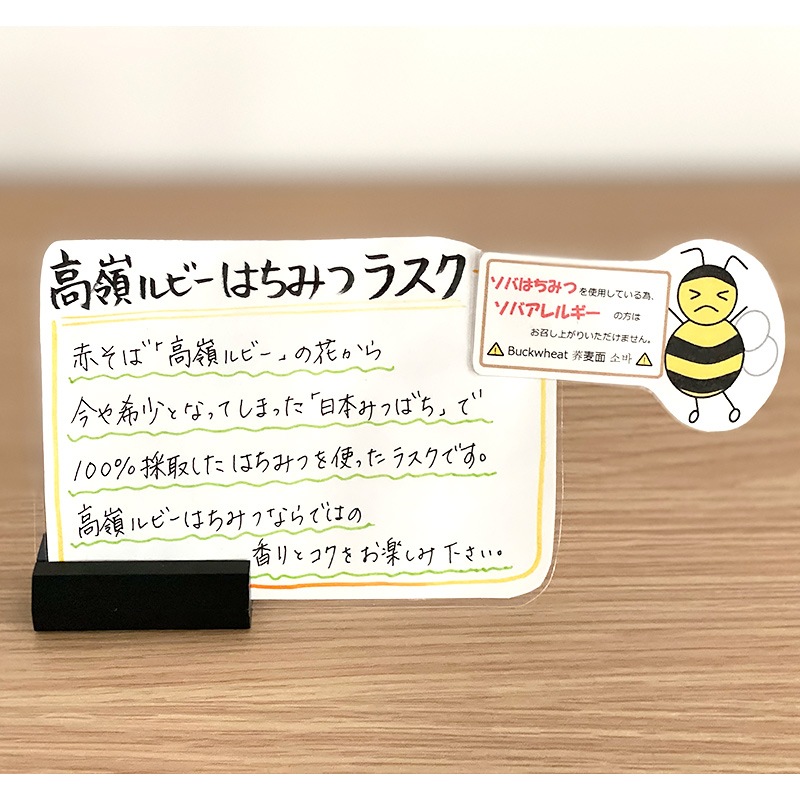 高嶺ルビーはちみつラスク
赤そば「高嶺ルビー」の花から
今や希少となってしまった「日本みつばち」で
100%採取したはちみつを使ったラスクです。
高嶺ルビーはちみつならではの
香りとコクをお楽しみ下さい。
ソバはちみつを使用している為、
ソバアレルギーの方は
お召し上がりいただけません。
⚠Buckwheat 荞麦面 소바⚠